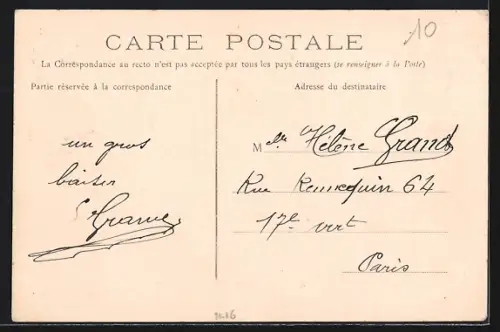 10
CARTE POSTALE
La Correspondance au recto n'est pas acceptée par tous les pays étrangers (se renseigner à la Poste)
Partie réservée à la correspondance
Adresse du destinataire
un gros
baiser
Melle Hélène Grand
Rue Rennequin 64
17e
Paris